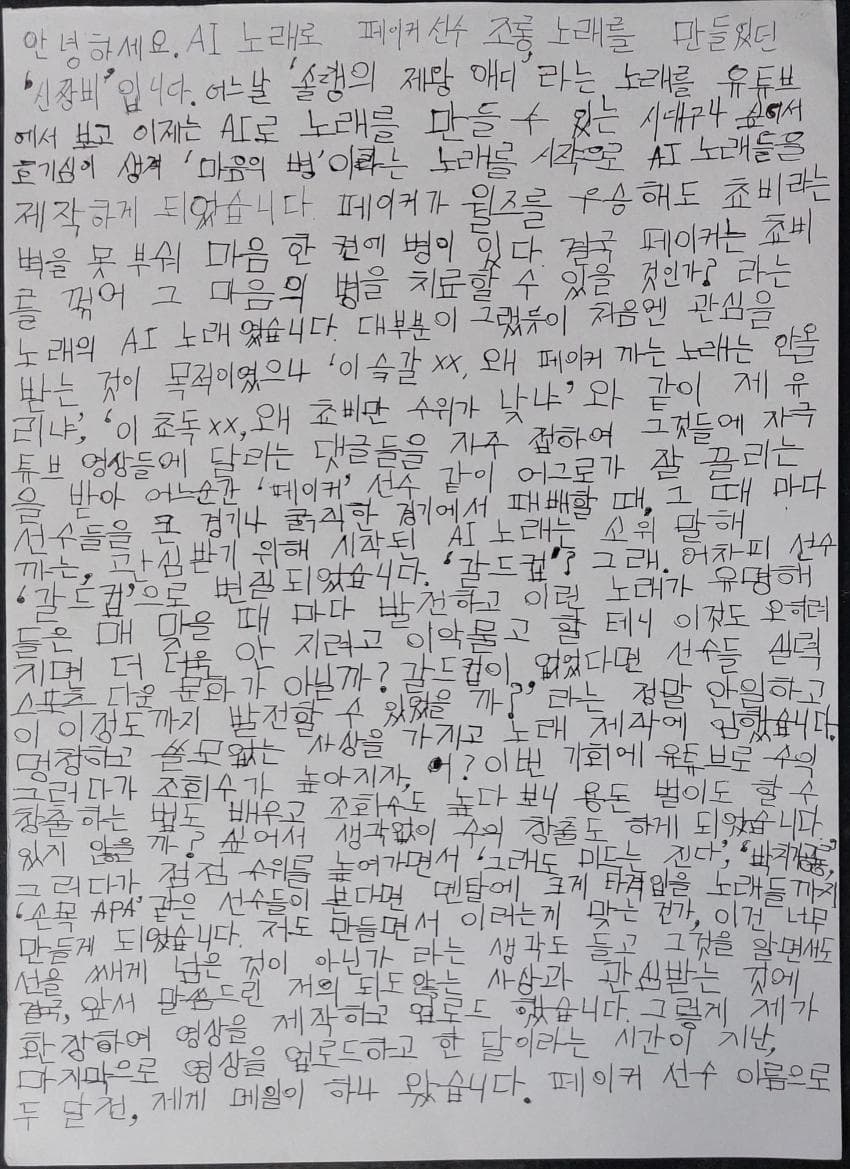 안녕하세요. AI 노래로 페이커 선수 조롱 노래를 만들었던
'신짱비'입니다. 어느날 '솔랭의 제왕 애디'라는 노래를 유튜브
에서 보고 이제는 AI로 노래를 만들 수 있는 시대구나 싶어서
호기심이 생겨 '마음의 병'이라는 노래를 시작으로 AI 노래들을
제작하게 되었습니다. 페이커가 월즈를 우승해도 쵸비라는
벽을 못 부숴 마음 한 켠에 병이 있다. 결국 페이커는 쵸비
를 꺾어 그 마음의 병을 치료할 수 있을 것인가? 라는
노래의 AI 노래였습니다. 대부분이 그랬듯이 처음엔 관심을
받는 것이 목적이였으나 '이 슥갈xx, 왜 페이커 까는 노래는 안올
리냐', '이 쵸독xx, 왜 쵸비만 수위가 낮냐'와 같이 제 유
튜브 영상들에 달리는 댓글들을 자주 접하여 그것들에 자극
을 받아 어느순간 '페이커' 선수 같이 어그로가 잘 끌리는
선수들을 큰 경기나 굵직한 경기에서 패배할 때, 그 때 마다
까는, 관심받기 위해 시작된 AI 노래는 소위 말해
'갈드컵'으로 변질되었습니다. '갈드컵'? 그래. 어차피 선수
들은 매 맞을 때 마다 발전하고 이런 노래가 유명해
지면 더 더욱 안 지려고 이악물고 할 테니 이것도 오히려
스포츠 다운 문화가 아닐까? 갈드컵이 없었다면 선수들 실력
이 이정도까지 발전할 수 있었을까?' 라는 정말 안일하고
멍청하고 쓸모없는 사상을 가지고 노래 제작에 임했습니다.
그러다가 조회수가 높아지자, 어? 이번 기회에 유튜브로 수익
창출하는 법도 배우고 조회수도 높다 보니 용돈 벌이도 할 수
있지 않을까? 싶어서 생각없이 수익 창출도 하게 되었습니다.
그러다가 점점 수위를 높여가면서 '그래도 미드는 진다',
'손목 APA' 같은 선수들이 본다면 멘탈에 크게 타격입을 노래들까지
만들게 되었습니다. 저도 만들면서 이러는게 맞는건가, 이건 너무
선을 쎄게 넘은 것이 아닌가 라는 생각도 들고 그것을 알면서도
결국, 앞서 말씀드린 저의 되도않는 사상과 관심받는 것에
환장하여 영상을 제작하고 업로드 했습니다. 그렇게 제가
마지막으로 영상을 업로드하고 한 달이라는 시간이 지난,
두 달 전, 제게 메일이 하나 왔습니다. 페이커 선수 이름으로